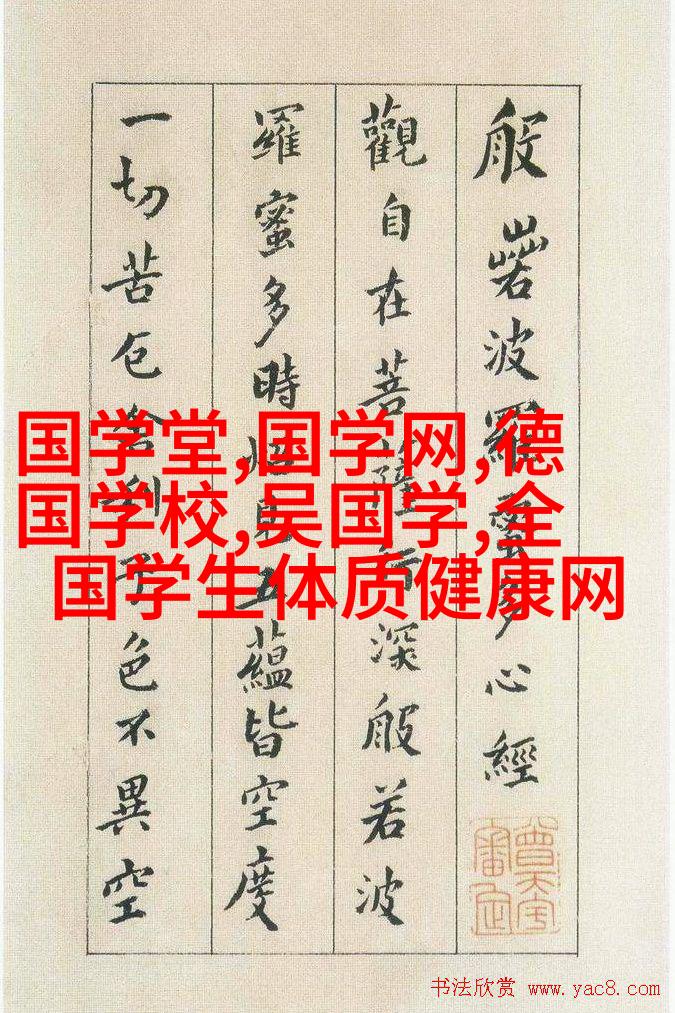 般若波羅蜜多心經
觀自在菩薩行深般若波
羅蜜多時照見五蘊皆空度
一切苦厄舍利子色不異空
国学堂,国学网,德
国学校,吴国学,全
国学生体质健康网
书法欣赏 www.yac8.com